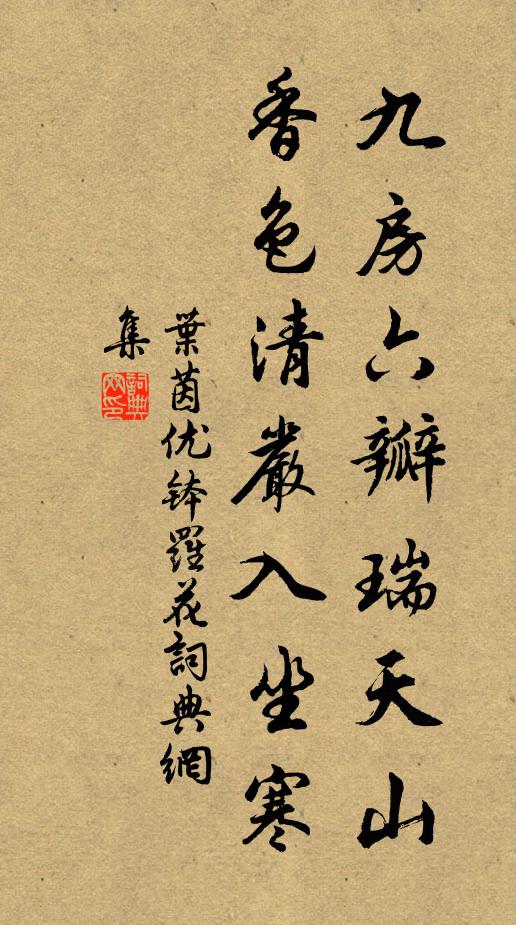 九房六瓣瑞天山
香色清嚴入坐寒
葉茵优钵羅花詞典網
集
詞典